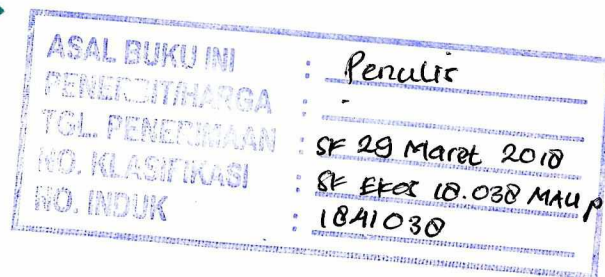 ASAL BUKU INI : Penulis
PENERBIT/HARGA : -
TGL. PENERIMAAN : SF 29 Maret 2018
NO. KLASIFIKASI : SF EKos 18.038 MAU p
NO. INDUK : 1841038